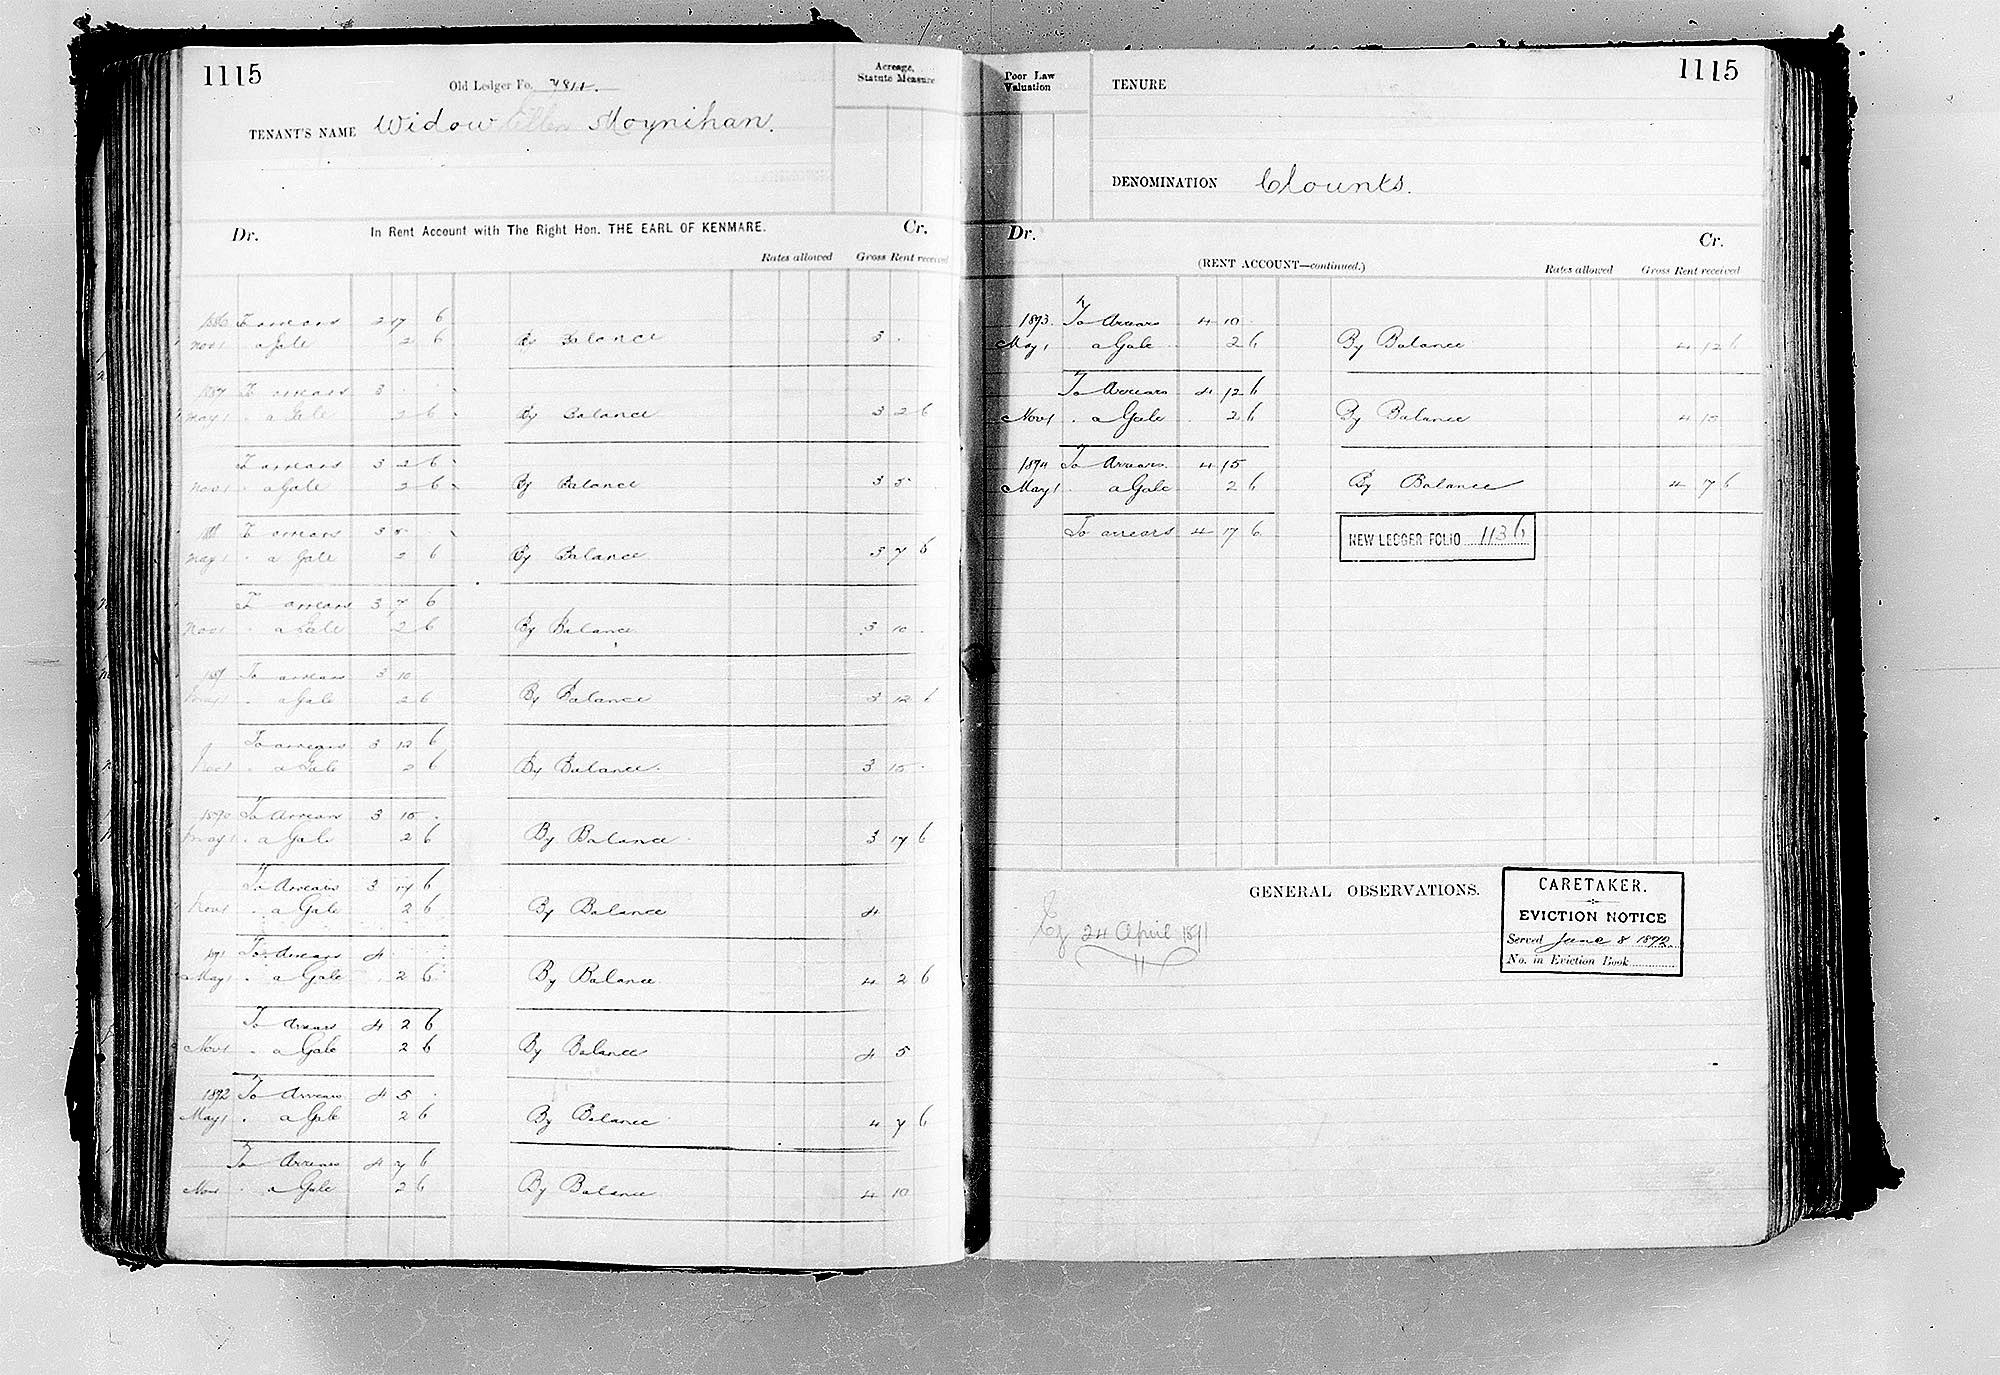 1115
Old Ledger Fo.
Acreage,
Statute Measure
TENANT'S NAME Widow Ellen Moynihan.
Dr. In Rent Account with The Right Hon. THE EARL OF KENMARE. Cr.
Rates allowed Gross Rent received
1886 To arrears 2 17 6
Nov 1 a Gale 2 6 By Balance 3 . .
1887 To arrears 3 . .
May 1 . a Gale 2 6 By Balance 3 2 6
To arrears 3 2 6
Nov 1 . a Gale 2 6 By Balance 3 5 .
188 To arrears 3 5 .
May 1 . a Gale 2 6 By Balance 3 7 6
To arrears 3 7 6
Nov 1 . a Gale 2 6 By Balance 3 10 .
To arrears 3 10
May 1 . a Gale 2 6 By Balance 3 12 6
To arrears 3 12 6
Nov 1 . a Gale 2 6 By Balance. 3 15 .
1890 To Arrears 3 15 .
May 1 . a Gale 2 6 By Balance . 3 17 6
To Arrears 3 17 6
Nov 1 . a Gale 2 6 By Balance 4
1891 To Arrears 4
May 1 . a Gale 2 6 By Balance 4 2 6
To Arrears 4 2 6
Nov 1 . a Gale 2 6 By Balance 4 5
1892 To Arrears 4 5 .
May 1 . a Gale 2 6 By Balance 4 7 6
To Arrears 4 7 6
Nov 1 . a Gale 2 6 By Balance 4 10
1115
Poor Law
Valuation
TENURE
DENOMINATION Clounts.
Dr. Cr.
(RENT ACCOUNT—continued.)
Rates allowed Gross Rent received
1893. To Arrears 4 10 .
May 1 a Gale . 2 6 By Balance 4 12 6
To Arrears 4 12 6
Nov 1 . a Gale . 2 6 By Balance 4 15
1894 To Arrears 4 15
May 1 . a Gale 2 6 By Balance 4 7 6
To arrears 4 17 6
NEW LEDGER FOLIO 1136
GENERAL OBSERVATIONS.
Ej 24 April 1891
CARETAKER.
EVICTION NOTICE
Served June 8 1892
No. in Eviction Book